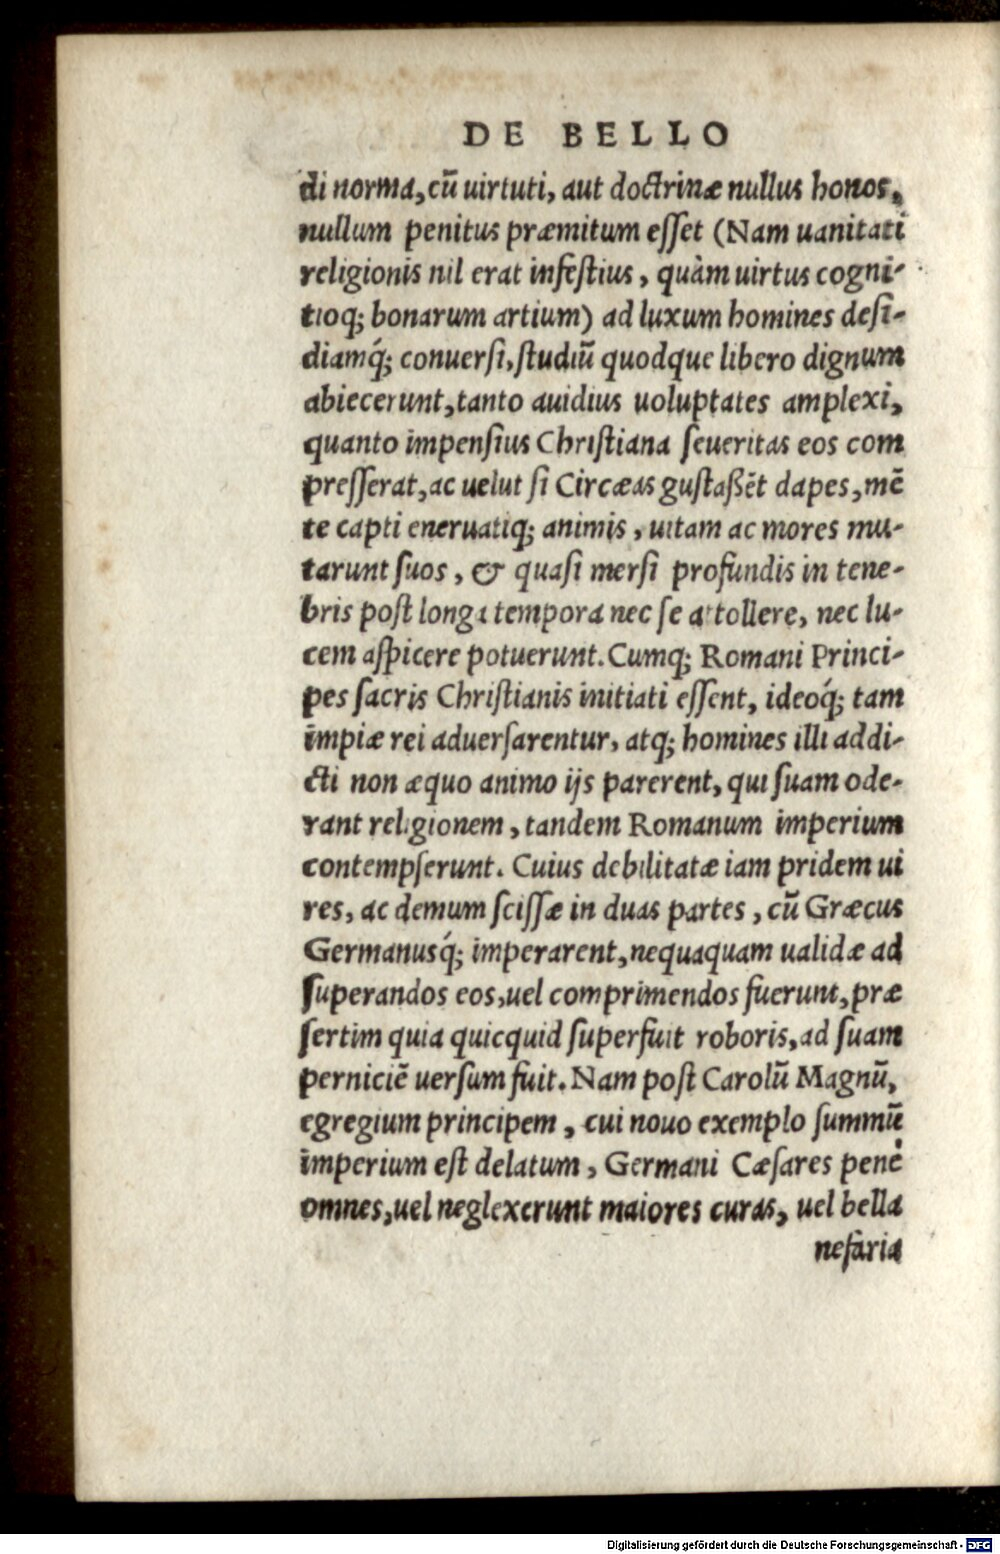 DE BELLO
di norma, cū uirtuti, aut doctrinæ nullus honos,
nullum penitus præmitum esset (Nam uanitati
religionis nil erat infestius, quàm uirtus cogni-
tioq; bonarum artium) ad luxum homines desi-
diamq́; conuersi, studiū quodque libero dignum
abiecerunt, tanto auidius uoluptates amplexi,
quanto impensius Christiana seueritas eos com
presserat, ac uelut si Circæas gustaßēt dapes, mē
te capti eneruatiq; animis, uitam ac mores mu-
tarunt suos, & quasi mersi profundis in tene-
bris post longa tempora nec se attollere, nec lu-
cem aspicere potuerunt. Cumq; Romani Princi-
pes sacris Christianis initiati essent, ideoq́; tam
impiæ rei aduersarentur, atq; homines illi addi-
cti non æquo animo ijs parerent, qui suam ode-
rant religionem, tandem Romanum imperium
contempserunt. Cuius debilitatæ iam pridem ui
res, ac demum scissæ in duas partes, cū Græcus
Germanusq́; imperarent, nequaquam ualidæ ad
superandos eos, uel comprimendos fuerunt, præ
sertim quia quicquid superfuit roboris, ad suam
perniciē uersum fuit. Nam post Carolū Magnū,
egregium principem, cui nouo exemplo summū
imperium est delatum, Germani Cæsares penè
omnes, uel neglexerunt maiores curas, uel bella
nefaria
Digitalisierung gefördert durch die Deutsche Forschungsgemeinschaft - DFG